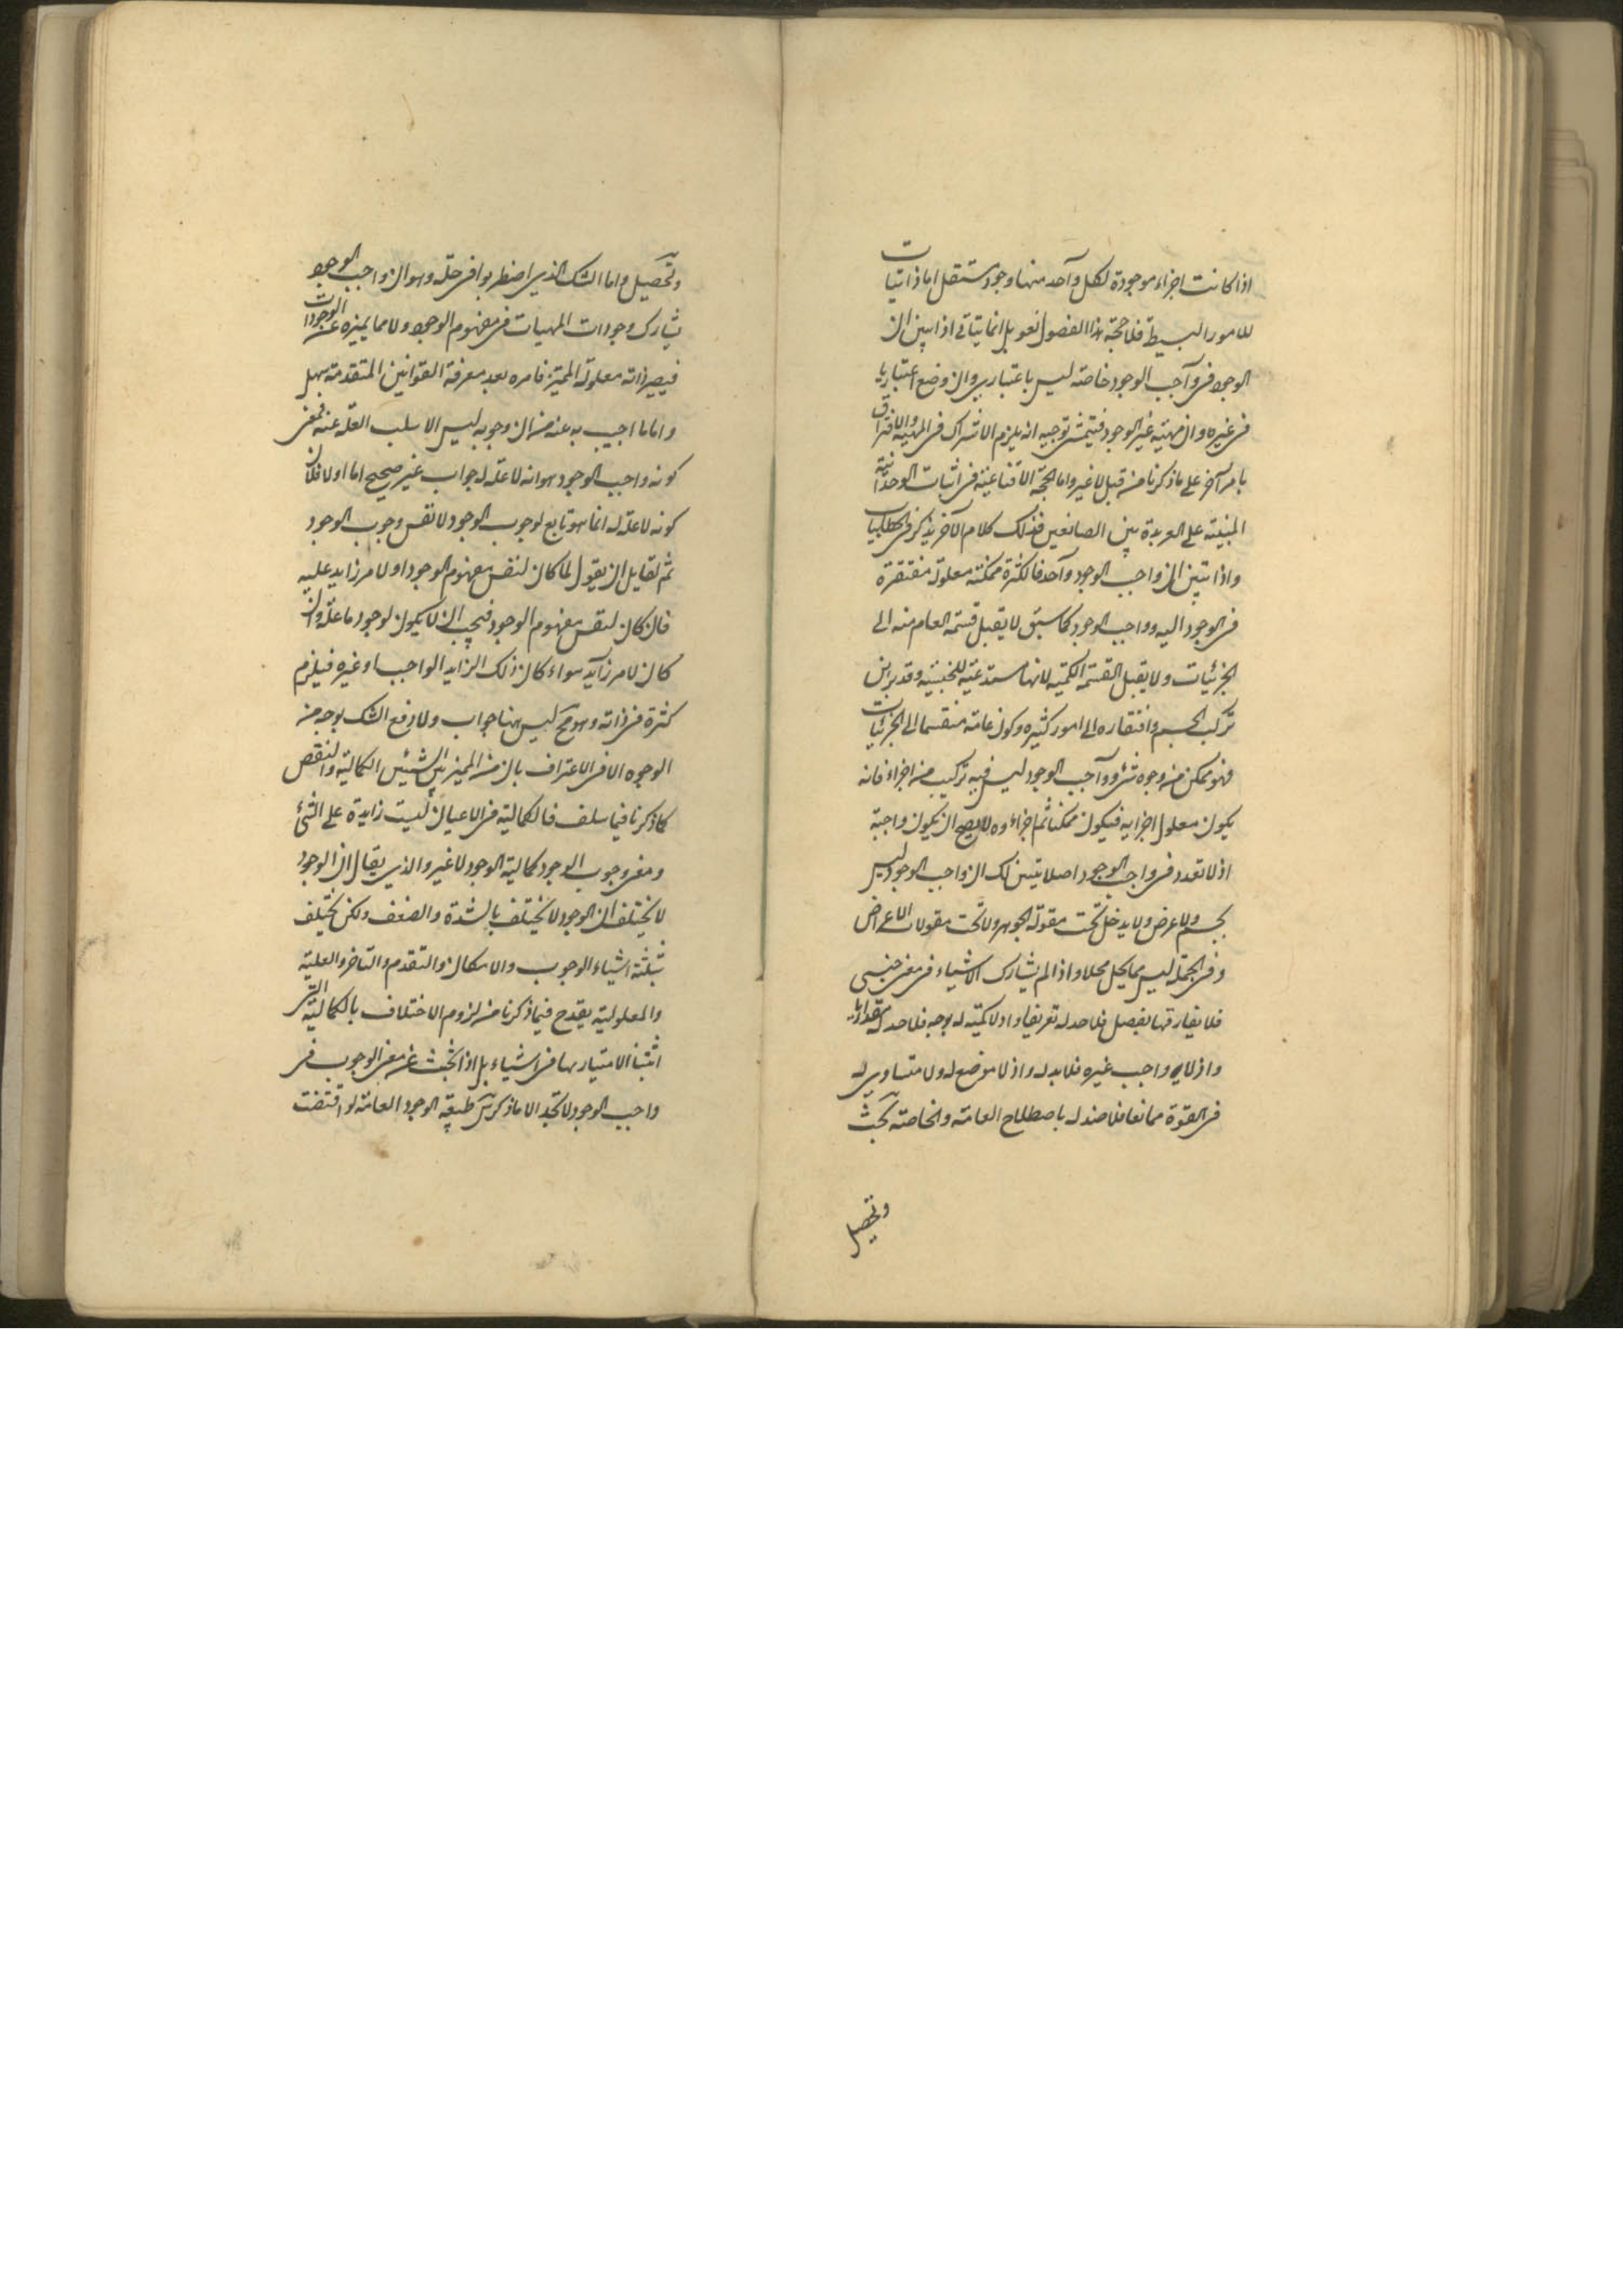 اذا كانت اجزاء موجودة لكل واحد منها وجود مستقل اما ذاتيات
للامور البسيطة فلا حجة بهذا الفصول نعول بل انما يتاتى اذا بين ان
الوجود فى واجب الوجود خاصته ليس باعتبارى وان وضع اعتباريا
فى غيره وان مهيته غير الوجود فيتمشى توجيه انه يلزم الاشتراك فى المهية والافتراق
بامر آخر على ما ذكرنا من قبل لا غير واما الحجة الاقناعية فى اثبات الوحدانية
المبنية على العربدة بين الصانعين فذلك كلام لآخر يذكر فى الخطابيات
واذا تبين ان واجب الوجود واحد فالكثرة ممكنة معلولة مفتقرة
فى الوجود اليه وواجب الوجود كما سبق لا يقبل قسمة العام منه الى
الجزئيات ولا يقبل القسمة الكمية لانها مستدعية للجنسية وقد برهن
تركب الجسم وافتقاره الى امور كثيره وكون عامة منقسما الى الجزئيات
فهو ممكن من وجوه شتى وواجب الوجود ليس فيه تركيب من اجزاء فانه
يكون معلول اجزايه فيكون ممكنا ثم اجزاءوه لا يصح ان يكون واجبة
اذ لا تعدد فى واجب الوجود اصلا تبين لك ان واجب الوجود ليس
بجسم ولا عرض ولا يدخل تحت مقولة الجوهر ولا تحت مقولات الاعراض
وفى الجملة ليس مما يحل محلا واذا لم يشارك الاشياء فى معنى جنسى
فلا يفارقها بفصل فلا حد له تعريفيا واذ لا كمية له بوجه فلا حد له مقداريا
واذ لا واجب غيره فلا ند له واذ لا موضع له ولا متساوى له
فى القوة ممانعا فلا ضد له باصطلاح العامة والخاصة بحث
وتحصيل
وتحصيل واما الشك الذى اضطربوا فى حله وهو ان واجب الوجود
يشارك وجودات المهيات فى مفهوم الوجود ولا مما يميزه عن الوجودات
فيصير ذاته معلولة المميز فامره بعد معرفة القوانين المتقدمة سهل
واما ما اجيب به عنه من ان وجوبه ليس الا سلب العلة عنه فمعنى
كونه واجب الوجود هو انه لا علة له جواب غير صحيح اما اولا فلان
كونه لا علة له انما هو تابع لوجوب الوجود لا نفس وجوب الوجود
ثم لقايل ان يقول لما كان لنفس مفهوم الوجود او لامر زايد عليه
فان كان لنفس مفهوم الوجود فيجب ان لا يكون لوجود ما علة وان
كان لامر زايد سواء كان ذلك الزايد الواجب او غيره فيلزم
كثرة فى ذاته وهو مح ليس هنا جواب ولا دفع الشك بوجه من
الوجوه الا فى الاعتراف بان من المميز بين الشيئين الكمالية والنقص
كما ذكرنا فيما سلف فالكمالية فى الاعيان ليست زايدة على الشئ
ومعنى وجوب الوجود كمالية الوجود لا غير والذى يقال ان الوجود
لا يختلف ان الوجود لا يختلف بالشدة والضعف ولكن يختلف
بثلثة اشياء الوجوب والامكان والتقدم والتاخر والعلية
والمعلولية يقدح فيما ذكرنا من لزوم الاختلاف بالكمالية التى
اثبتنا الامتياز بها فى اشياء بل اذا بحثت عن معنى الوجوب فى
واجب الوجود لا تجد الا ما ذكر طبيعة الوجود العامة لو اقتضت